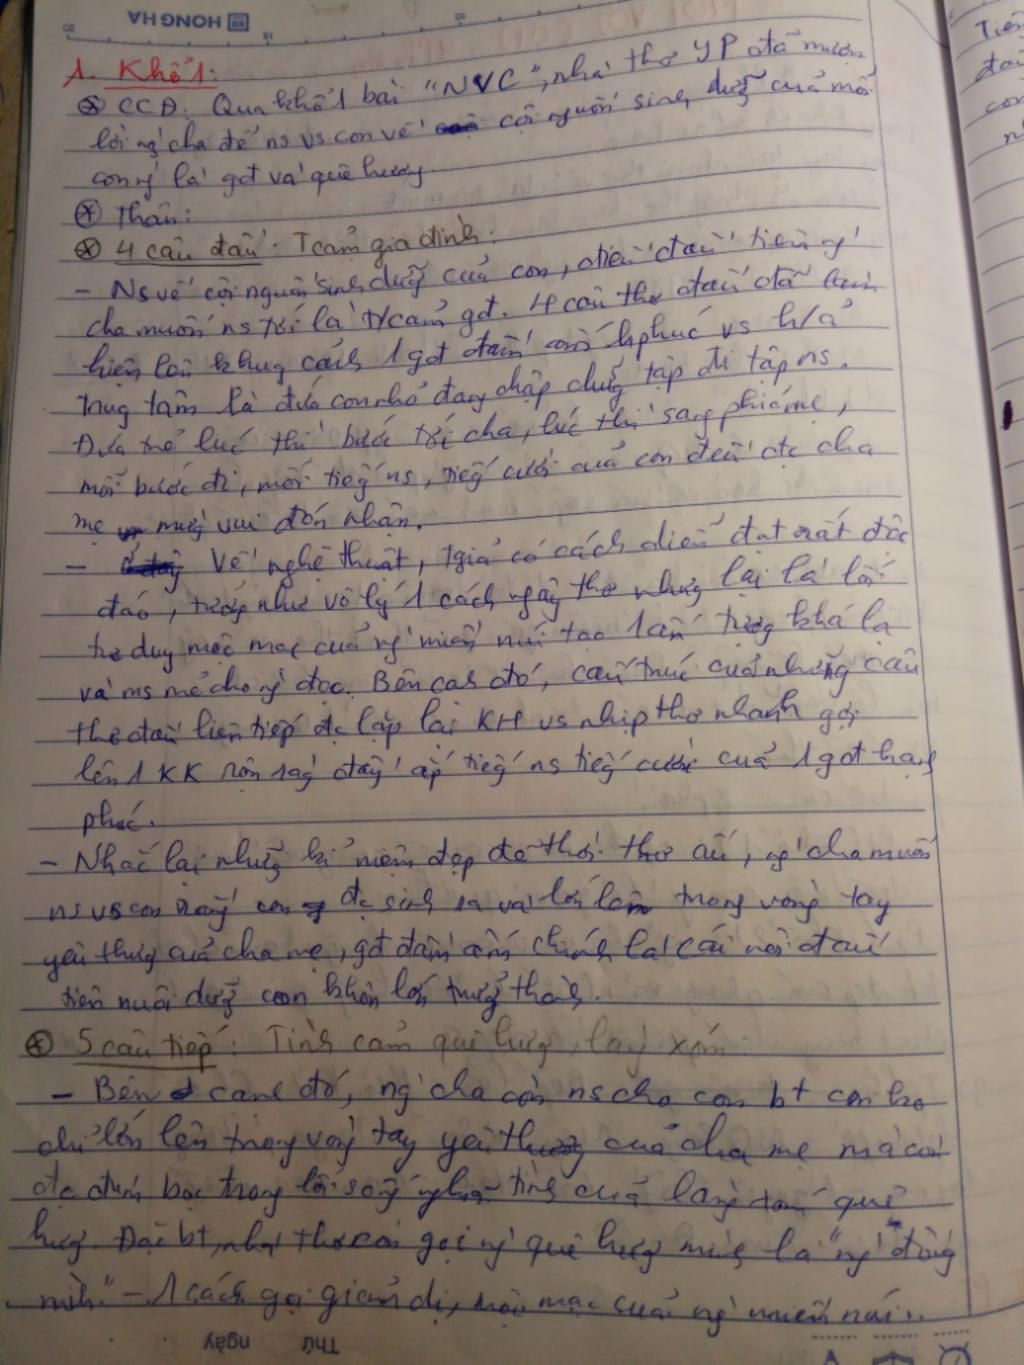 HONG HA
1. Khổ 1:
⊛ CCĐ: Qua khổ 1 bài "NVC", nhà thơ YP đã mượn
lời ng' cha để ns vs con về cội nguồn sinh dưỡg của mỗi
con ng' là gđ và quê hương.
⊛ Thân:
⊛ 4 câu đầu: T cảm gia đình:
- Ns về cội nguồn sinh dưỡg của con, điều đầu tiên ng'
cha muốn ns tới là t/cảm gđ. 4 câu thơ đầu đã
hiện lên khug cảnh 1 gđ đầm ấm h phúc vs h/ả
trug tâm là đứa con nhỏ đag chập chữg tập đi tập ns.
Đứa trẻ lúc thì bước tới cha, lúc thì sang phía mẹ,
mỗi bước đi, mỗi tiếg ns, tiếg cười của con đều đc cha
mẹ mừg vui đón nhận.
- Về nghệ thuật, t giả có cách diễn đạt rất độc
đáo, tưởg như vô lý 1 cách ngây thơ nhưg lại là lối
tư duy mộc mạc của ng' miền núi tạo 1 ấn tượg khá lạ
và ms mẻ cho ng' đọc. Bên cah đó, cấu trúc của những câu
thơ đầu liên tiếp đc lặp lại KH vs nhịp thơ nhanh gợi
lên 1 KK rộn rag' đầy ắp tiếg ns tiếg cười của 1 gđ hạnh
phúc.
- Nhắc lại nhữg kỉ niệm đẹp đẽ thời thơ ấu, ng' cha muốn
ns vs con rằg con đc sinh ra và lớn lên trong vòng tay
yêu thưg của cha mẹ, gđ đầm ấm chính là cái nôi đầu
tiên nuôi dưỡg con khôn lớn trưởg thành.
⊛ 5 câu tiếp: Tình cảm quê hưg, làg xóm:
- Bên cạnh đó, ng' cha còn ns cho con bt con ko
chỉ lớn lên trong vòg tay yêu thươg của cha mẹ mà còn
đc đùm bọc trong lối sốg nghĩa tình của làng quê
hưg. Đặc bt, nhà thơ còn gọi ng' quê hưg mìh là "ng' đồng
mìh" - 1 cách gọi giản dị, mộc mạc của ng' miền núi..
Thứ ngày